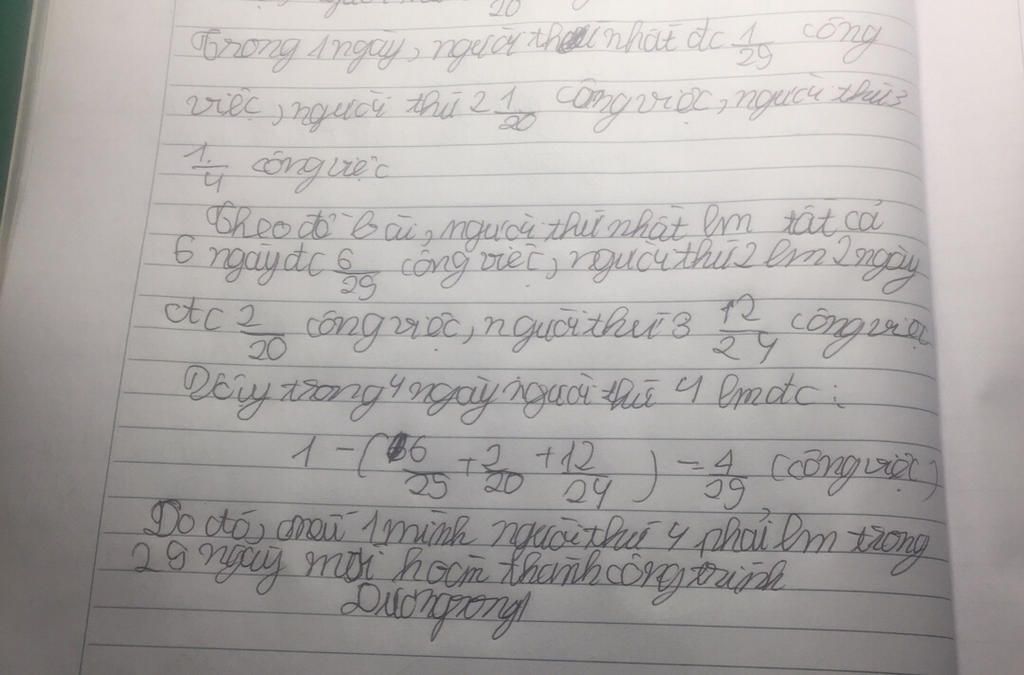 20
Trong 1 ngày, người thứ nhất đc 1/29 công
việc, người thứ 2 1/20 công việc, người thứ 3
1/4 công việc
Theo đề bài, người thứ nhất lm tất cả
6 ngày đc 6/29 công việc, người thứ 2 lm 2 ngày
đc 2/20 công việc, người thứ 3 12/24 công việc
Vậy trong 4 ngày người thứ 4 lm đc :
1 - ( 6/25 + 2/20 + 12/24 ) = 4/29 (công việc)
Do đó, 1 mình người thứ 4 phải lm trong
29 ngày mới hoàn thành công trình